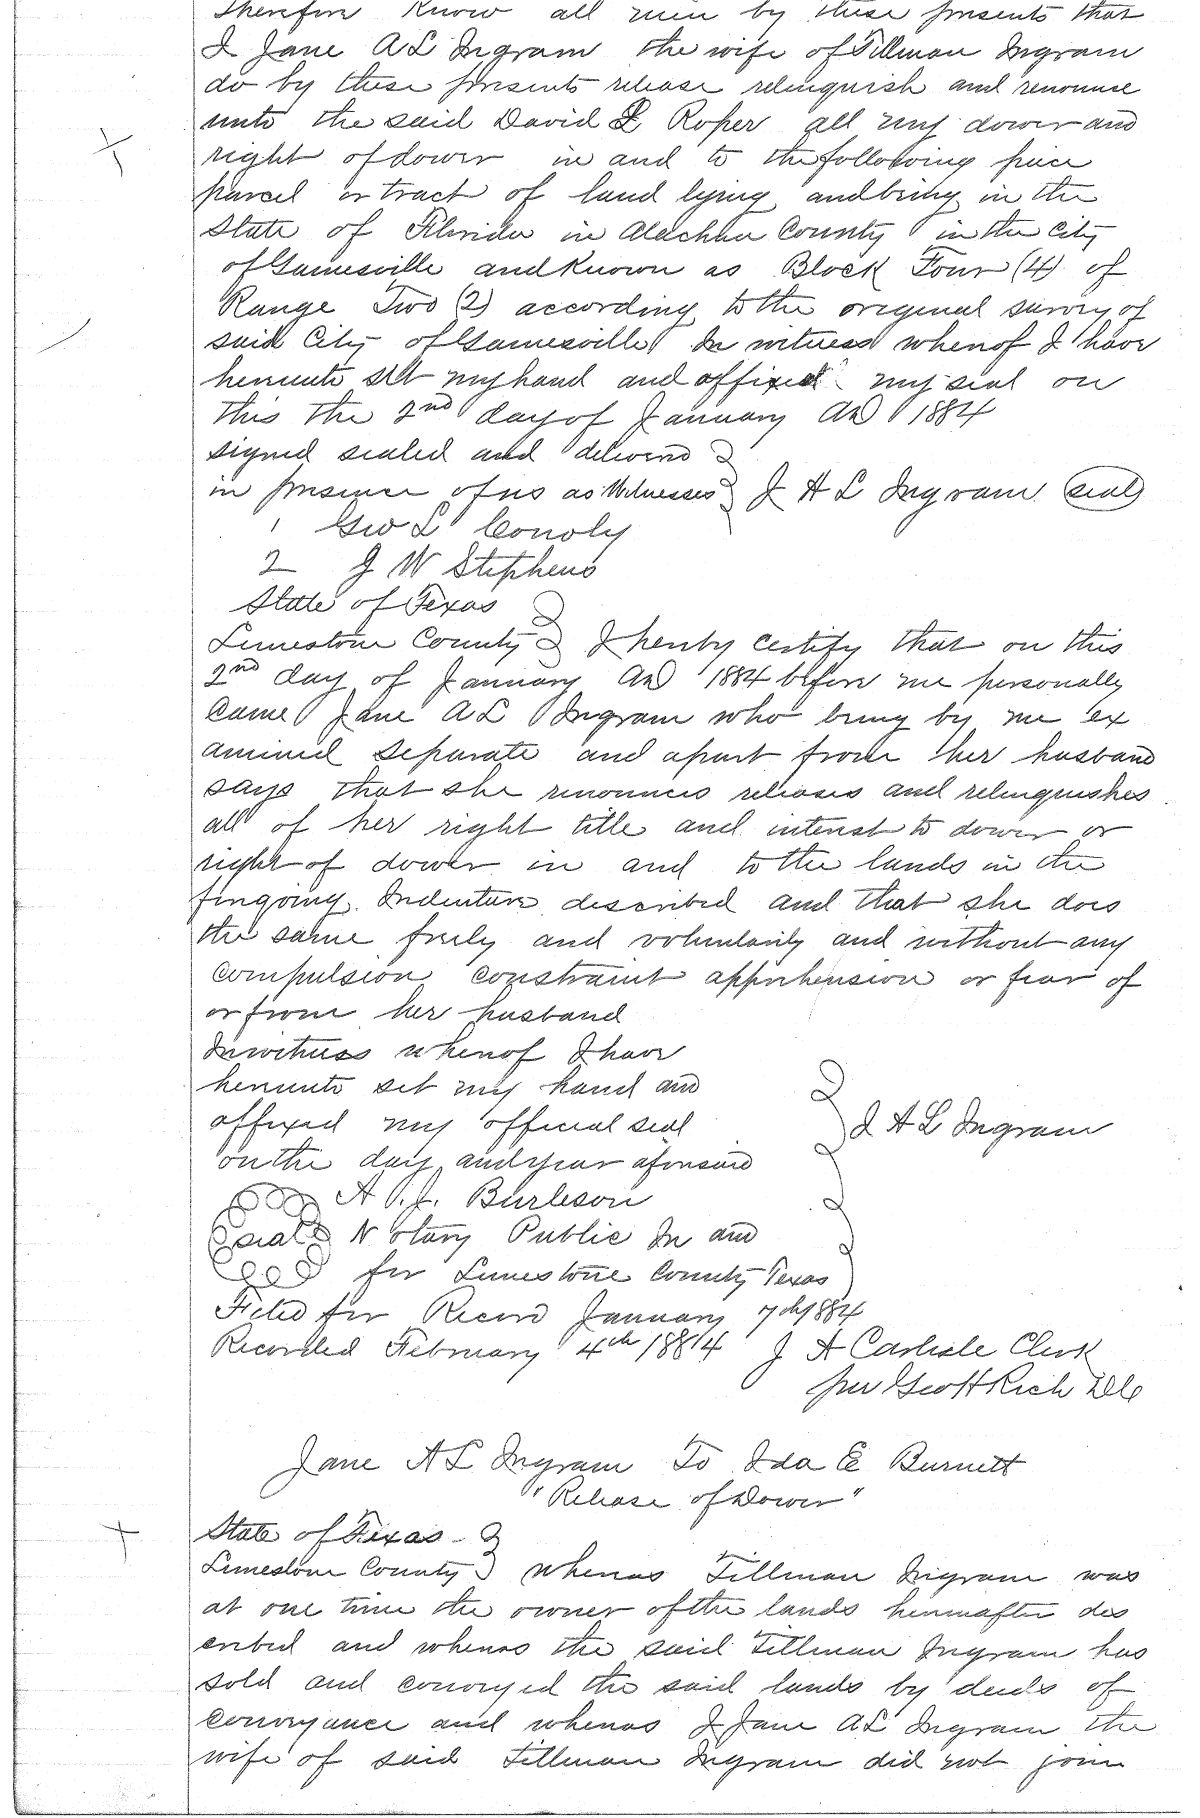 Therefore Know all men by these presents that
I Jane A L Ingram the wife of Tillman Ingram
do by these presents release relinquish and renounce
unto the said David L Roper all my dower and
right of dower in and to the following piece
parcel or tract of land lying and being in the
State of Florida in Alachua County in the City
of Gainesville and Known as Block Four (4) of
Range Two (2) according to the original survey of
said City of Gainesville In witness whereof I have
hereunto set my hand and affixed my seal on
this the 2nd day of January AD 1884
signed sealed and delivered
in presence of us as Witnesses J A L Ingram seal
1 Geo L Conoly
2 J W Stephens
State of Texas
Limestone County I hereby certify that on this
2nd day of January AD 1884 before me personally
came Jane A L Ingram who being by me ex
amined separate and apart from her husband
says that she renounces releases and relinquishes
all of her right title and interest to dower or
right of dower in and to the lands in the
foregoing Indenture described and that she does
the same freely and voluntarily and without any
compulsion constraint apprehension or fear of
or from her husband
In witness whereof I have
hereunto set my hand and
affixed my official seal J A L Ingram
on the day and year aforesaid
A. J. Burleson
seal Notary Public In and
for Limestone County Texas
Filed for Record January 7th 1884
Recorded February 4th 1884 J A Carlisle Clerk
per Geo H Rich D C
Jane A L Ingram To Ida E Burnett
"Release of Dower"
State of Texas
Limestone County whereas Tillman Ingram was
at one time the owner of the lands hereinafter des
cribed and whereas the said Tillman Ingram has
sold and conveyed the said lands by deeds of
conveyance and whereas I Jane A L Ingram the
wife of said Tillman Ingram did not join